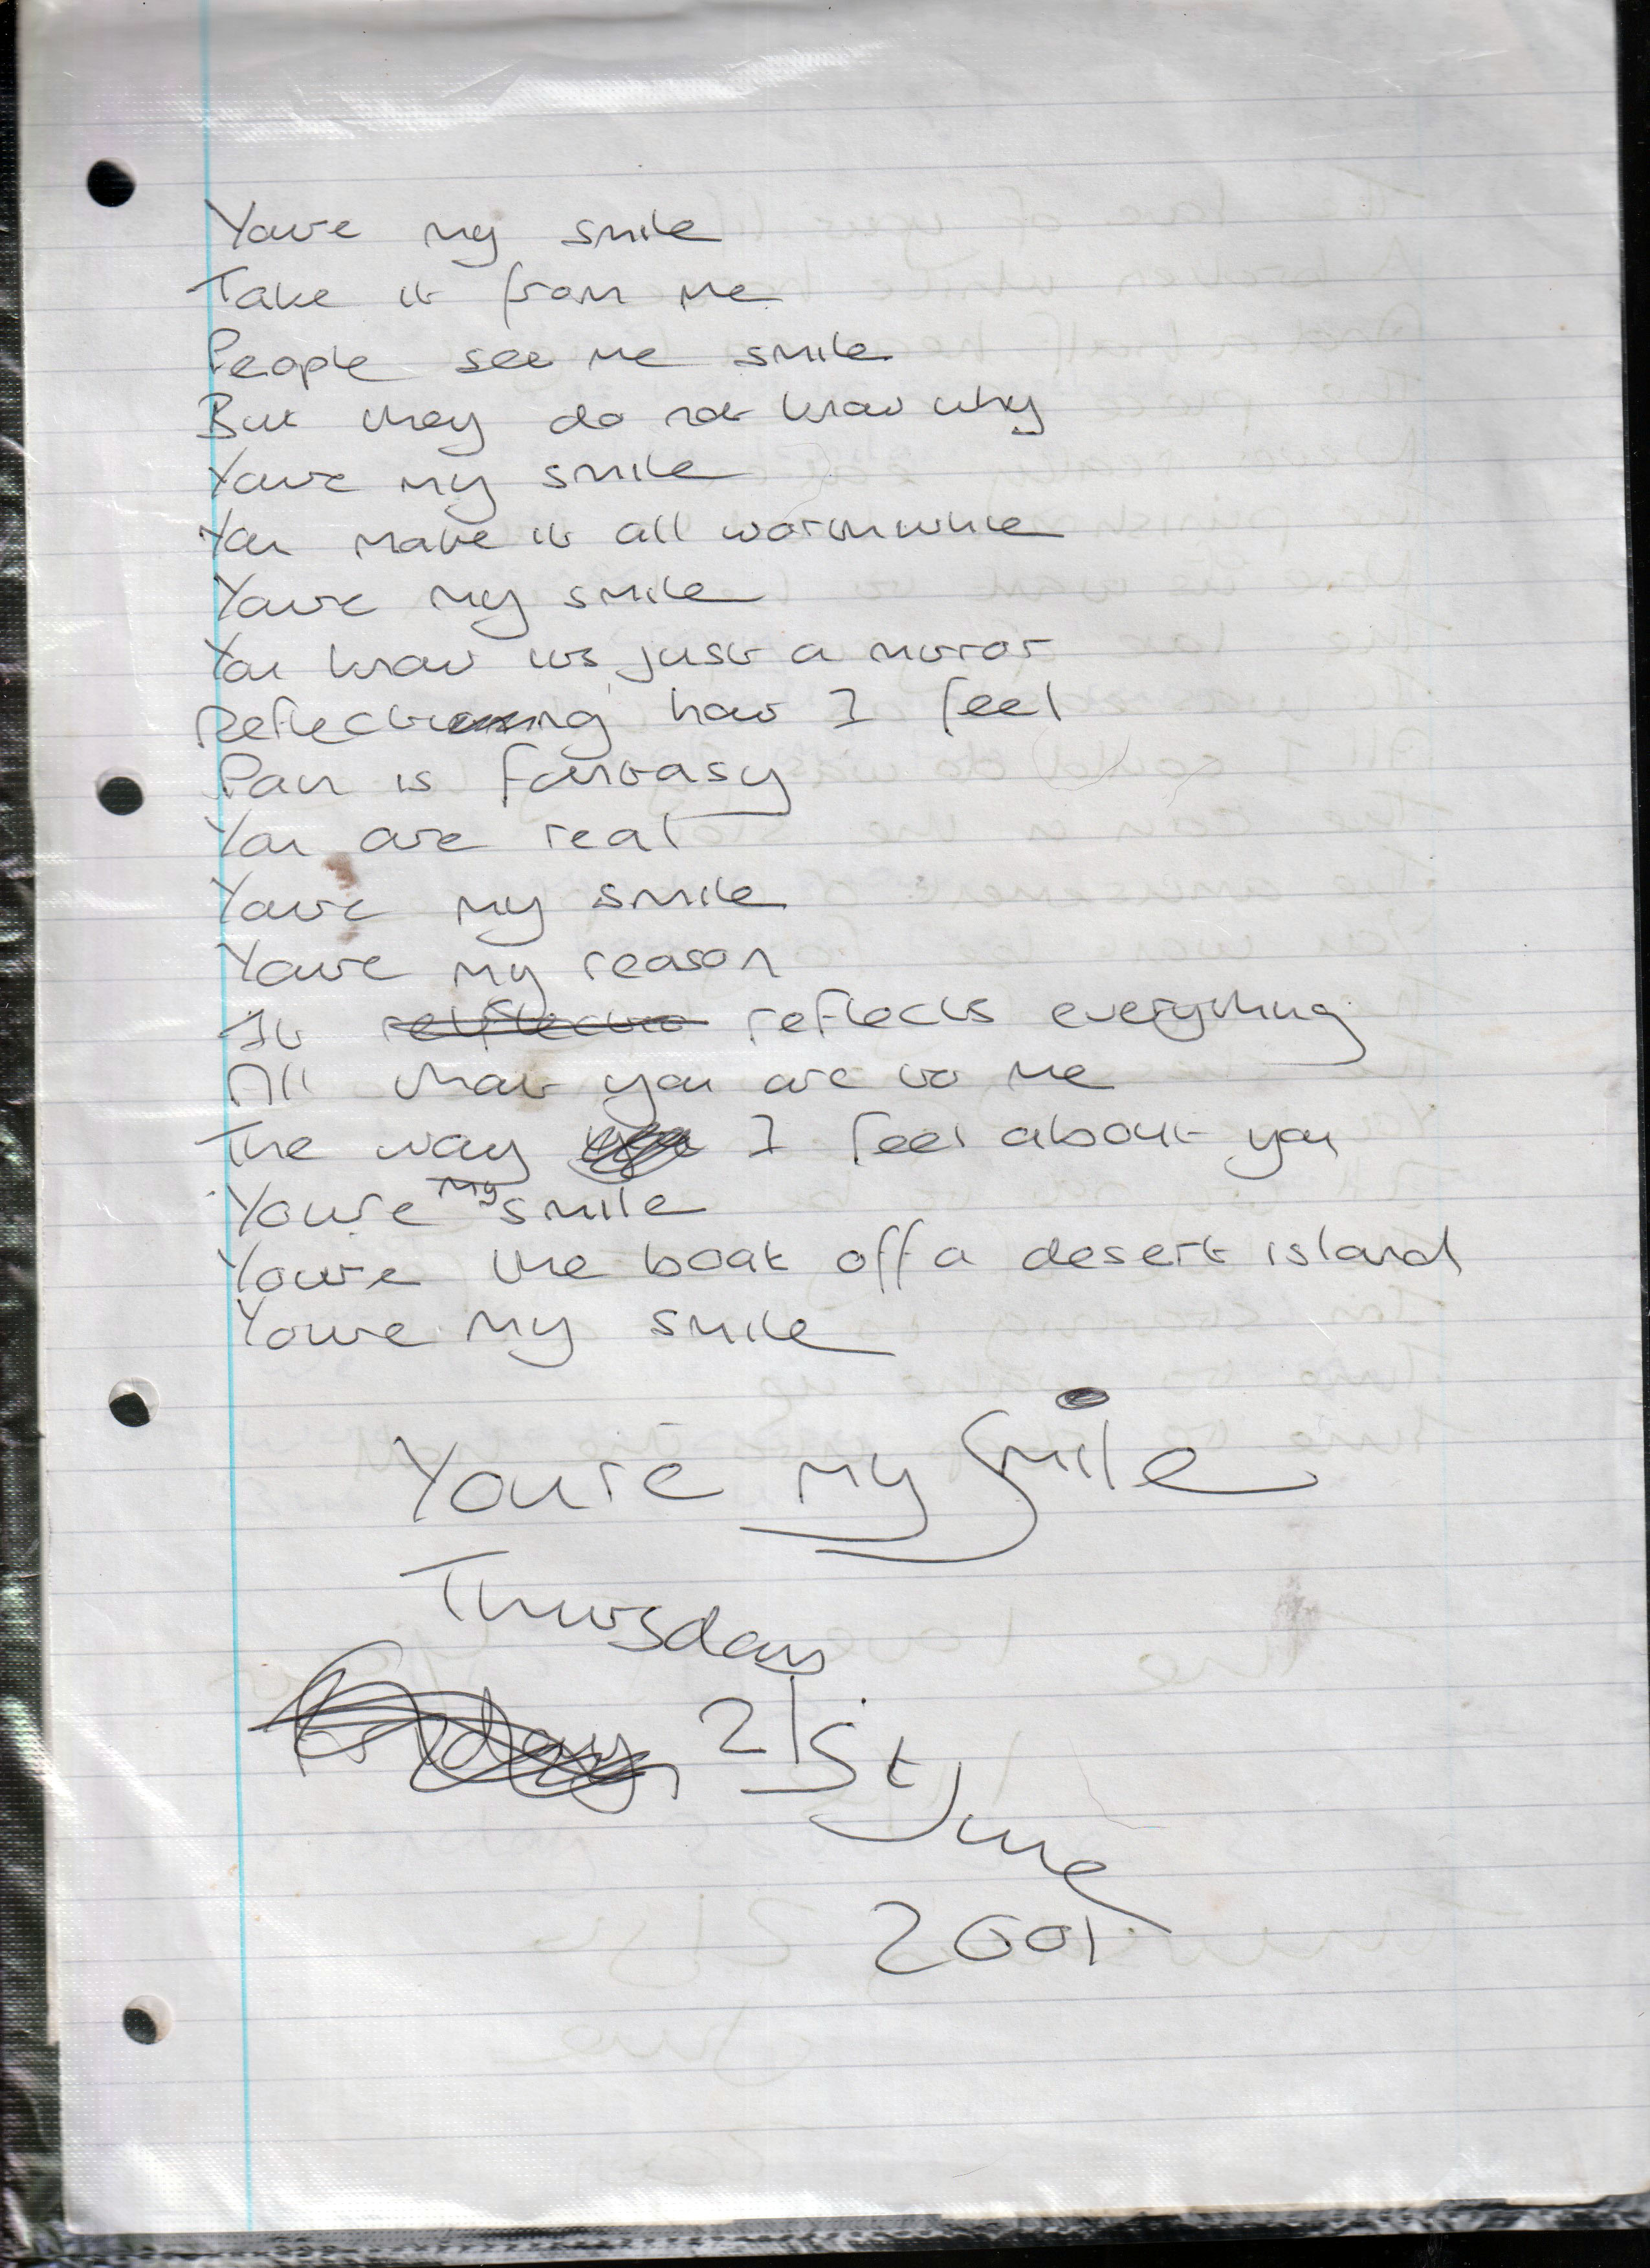 Youre my smile
Take it from me
People see me smile
But they do not know why
Youre my smile
You make it all worthwhile
Youre my smile
You know its just a mirror
Reflecting how I feel
Pain is fantasy
You are real
Youre my smile
Youre my reason
It reflects everything
All that you are to me
The way I feel about you
Youre my smile
Youre the boat off a desert island
Youre my smile
Youre my smile
Thursday
21st
June
2001